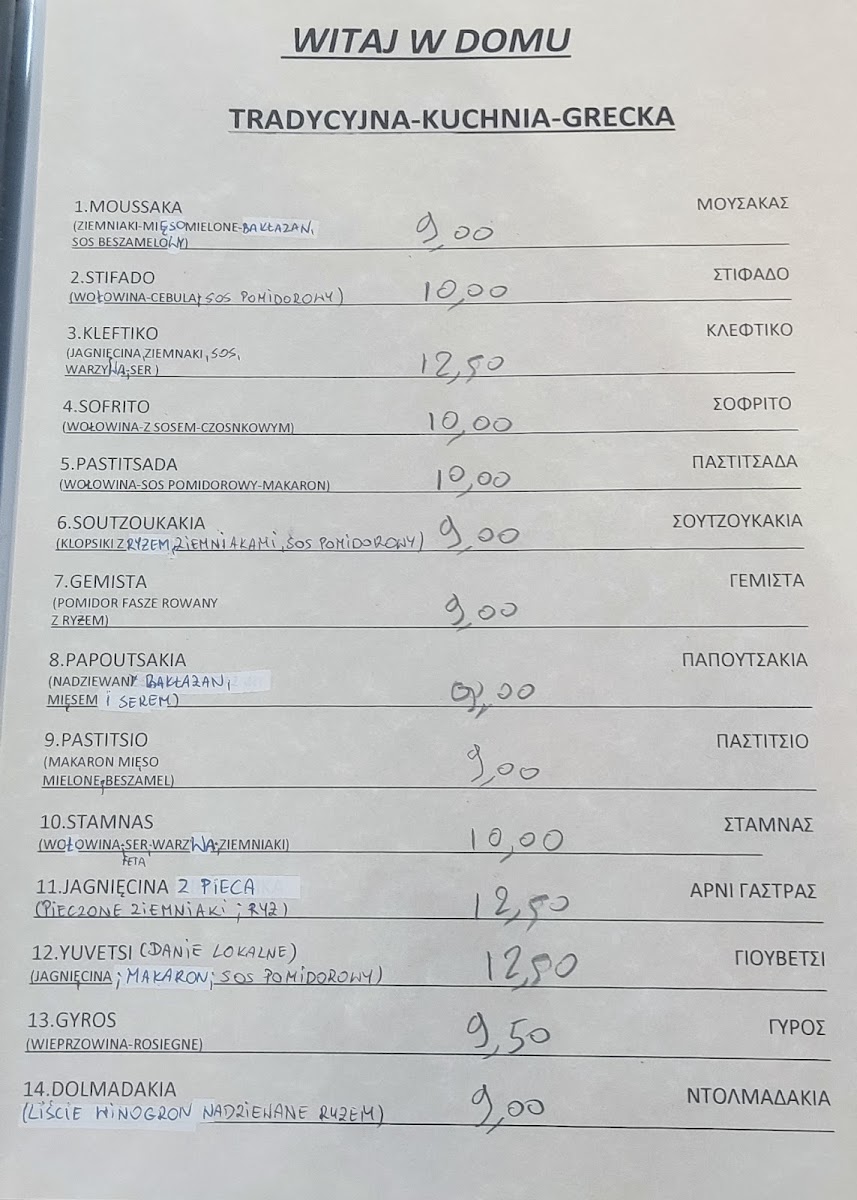 WITAJ W DOMU
TRADYCYJNA-KUCHNIA-GRECKA
1.MOUSSAKA 9,00 ΜΟΥΣΑΚΑΣ
(ZIEMNIAKI-MIĘSOMIELONE-BAKŁAŻAN,
SOS BESZAMELOWY)
2.STIFADO 10,00 ΣΤΙΦΑΔΟ
(WOŁOWINA-CEBULA, SOS POMIDOROWY)
3.KLEFTIKO 12,50 ΚΛΕΦΤΙΚΟ
(JAGNIĘCINA,ZIEMNAKI,SOS,
WARZYWA,SER)
4.SOFRITO 10,00 ΣΟΦΡΙΤΟ
(WOŁOWINA-Z SOSEM-CZOSNKOWYM)
5.PASTITSADA 10,00 ΠΑΣΤΙΤΣΑΔΑ
(WOŁOWINA-SOS POMIDOROWY-MAKARON)
6.SOUTZOUKAKIA 9,00 ΣΟΥΤΖΟΥΚΑΚΙΑ
(KLOPSIKI Z RYŻEM,ZIEMNIAKAMI,SOS POMIDOROWY)
7.GEMISTA 9,00 ΓΕΜΙΣΤΑ
(POMIDOR FASZE ROWANY
Z RYŻEM)
8.PAPOUTSAKIA 9,00 ΠΑΠΟΥΤΣΑΚΙΑ
(NADZIEWANY BAKŁAŻAN,
MIĘSEM I SEREM)
9.PASTITSIO 9,00 ΠΑΣΤΙΤΣΙΟ
(MAKARON MIĘSO
MIELONE,BESZAMEL)
10.STAMNAS 10,00 ΣΤΑΜΝΑΣ
(WOŁOWINA;SER;WARZWA;ZIEMNIAKI)
FETA
11.JAGNIĘCINA Z PIECA 12,50 ΑΡΝΙ ΓΑΣΤΡΑΣ
(PIECZONE ZIEMNIAKI ; RYŻ)
12.YUVETSI (DANIE LOKALNE) 12,50 ΓΙΟΥΒΕΤΣΙ
(JAGNIĘCINA ; MAKARON; SOS POMIDOROWY)
13.GYROS 9,50 ΓΥΡΟΣ
(WIEPRZOWINA-ROSIEGNE)
14.DOLMADAKIA 9,00 ΝΤΟΛΜΑΔΑΚΙΑ
(LIŚCIE WINOGRON NADZIEWANE RYŻEM)